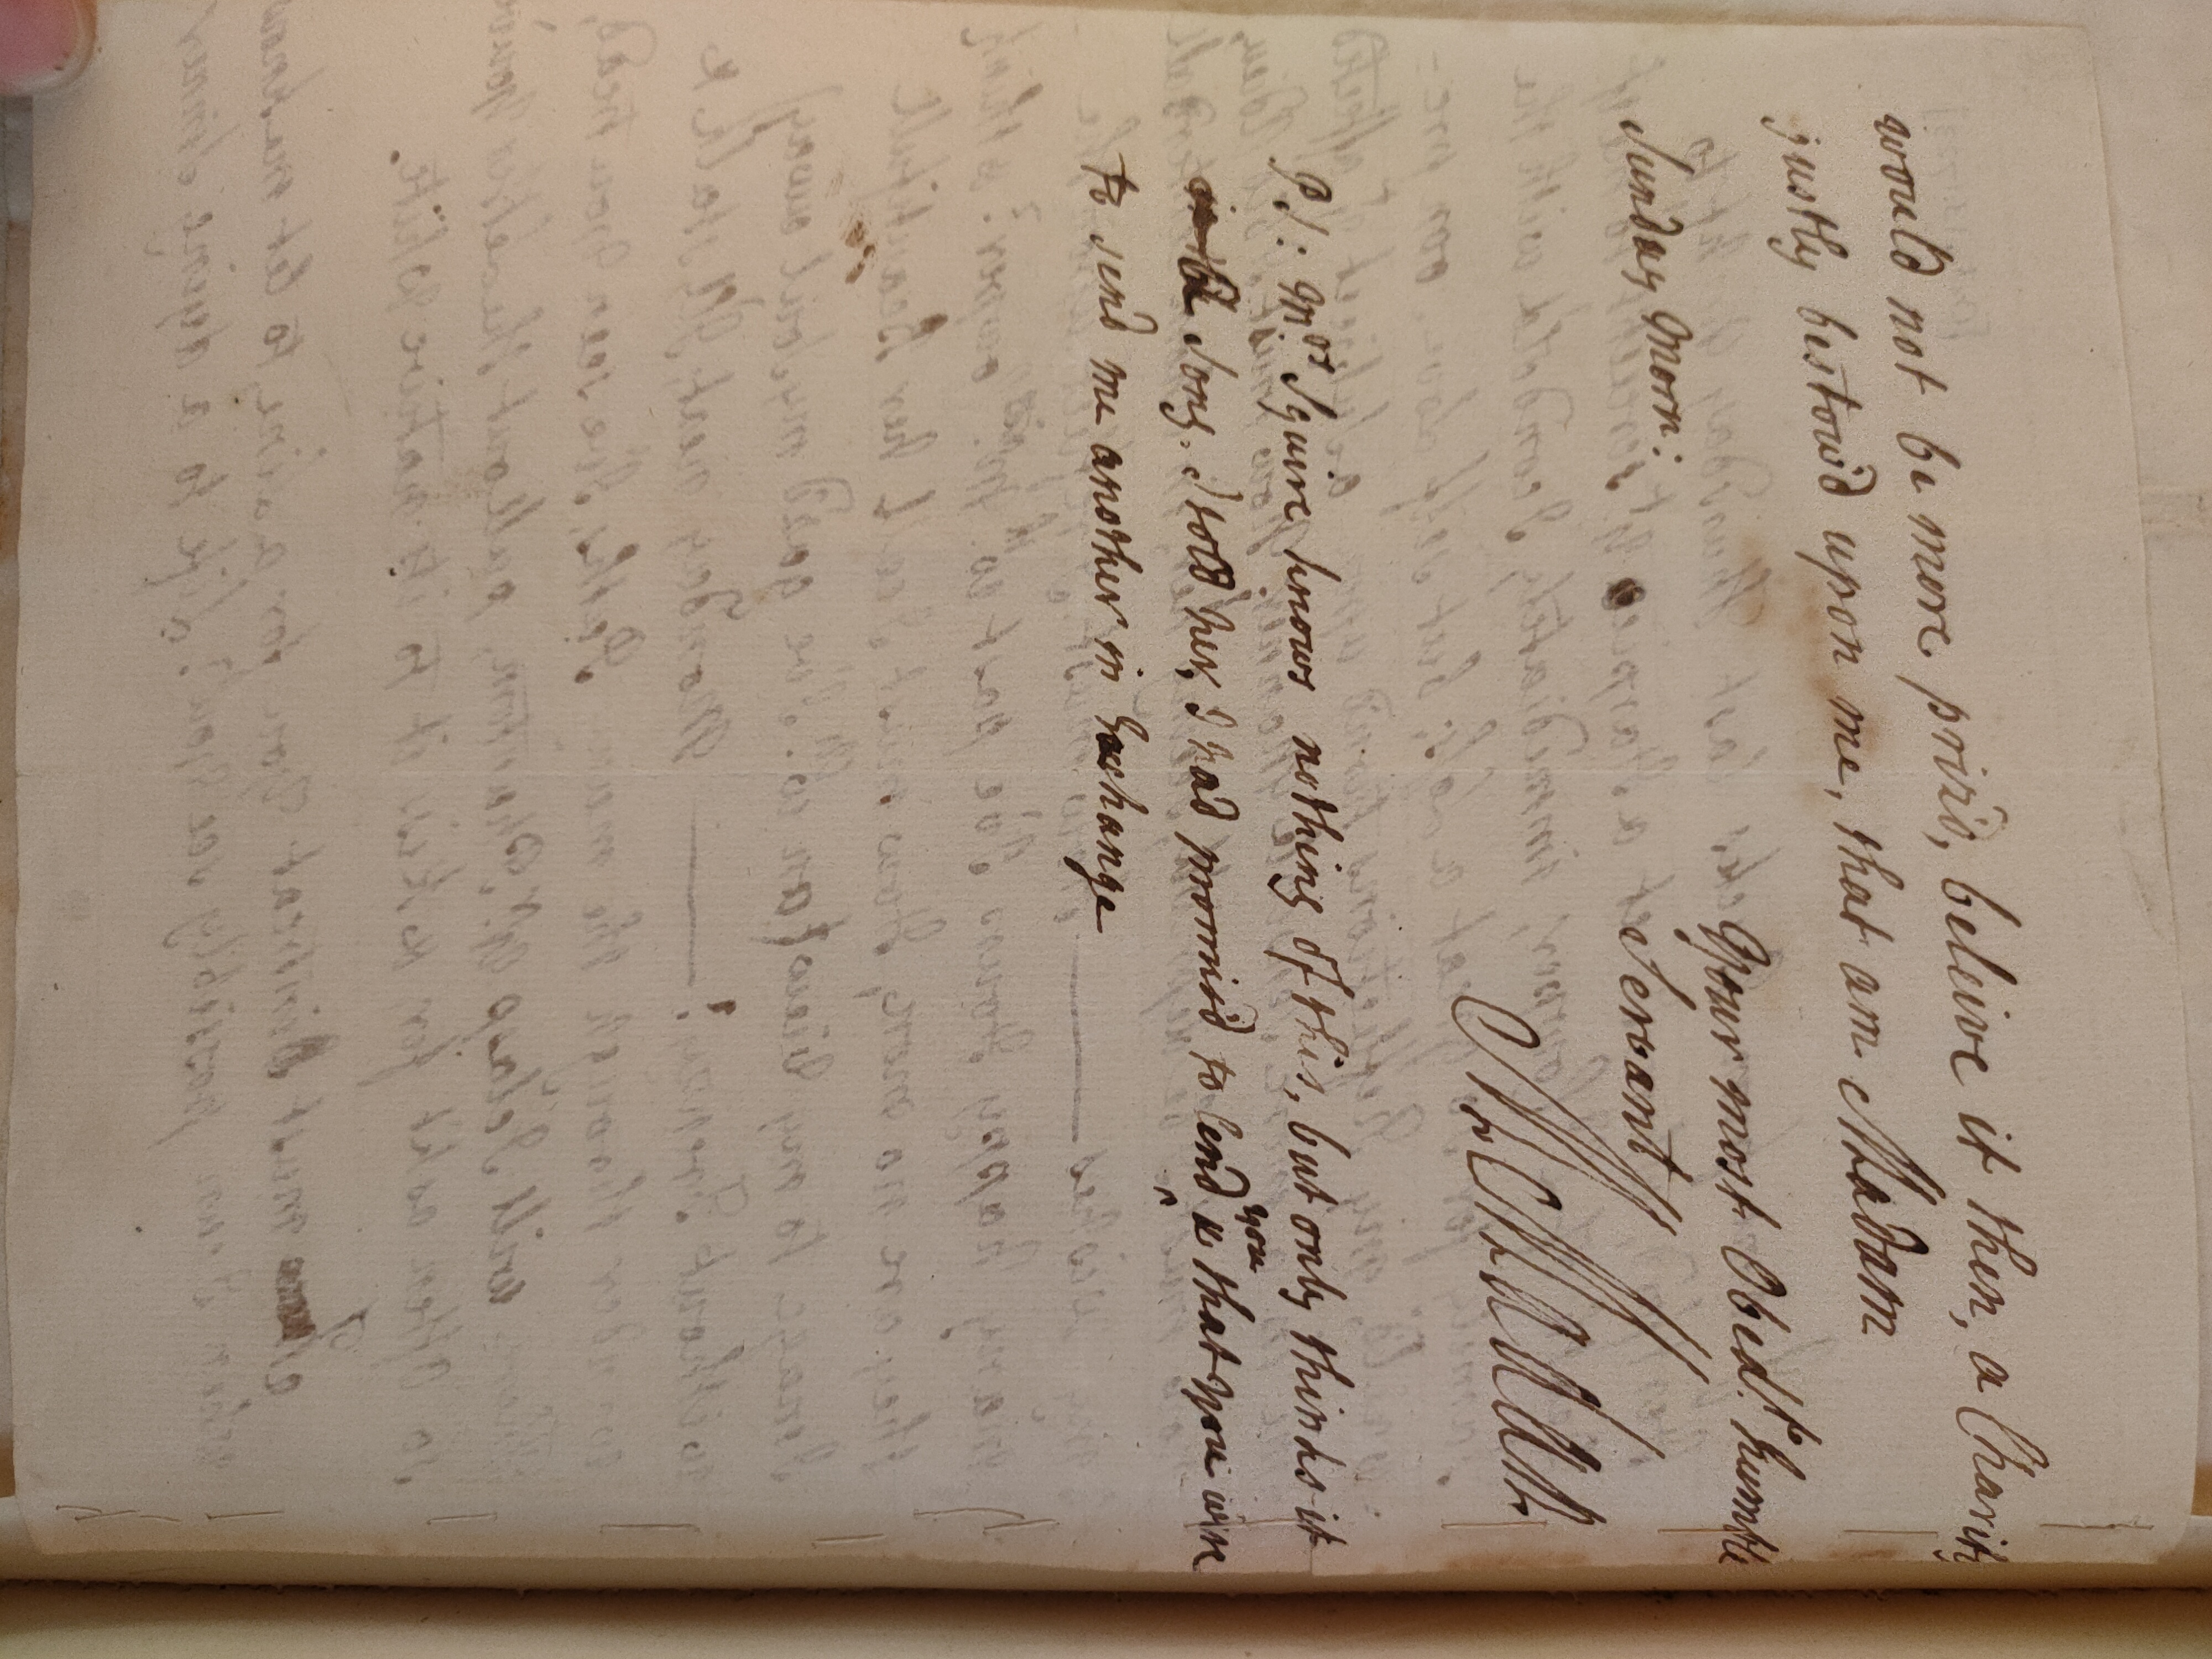 would not be more priz'd, beleive it then, a Charity
justly bestow'd upon me, that am Madam
Your most Obedt. humble
Sunday Morn:
Servant
M Madan
PS: Mrs. Squire knows nothing of this, but only thinks it
a Song. I told her, I had promis'd to lend you & that you were
to send me another in Exchange